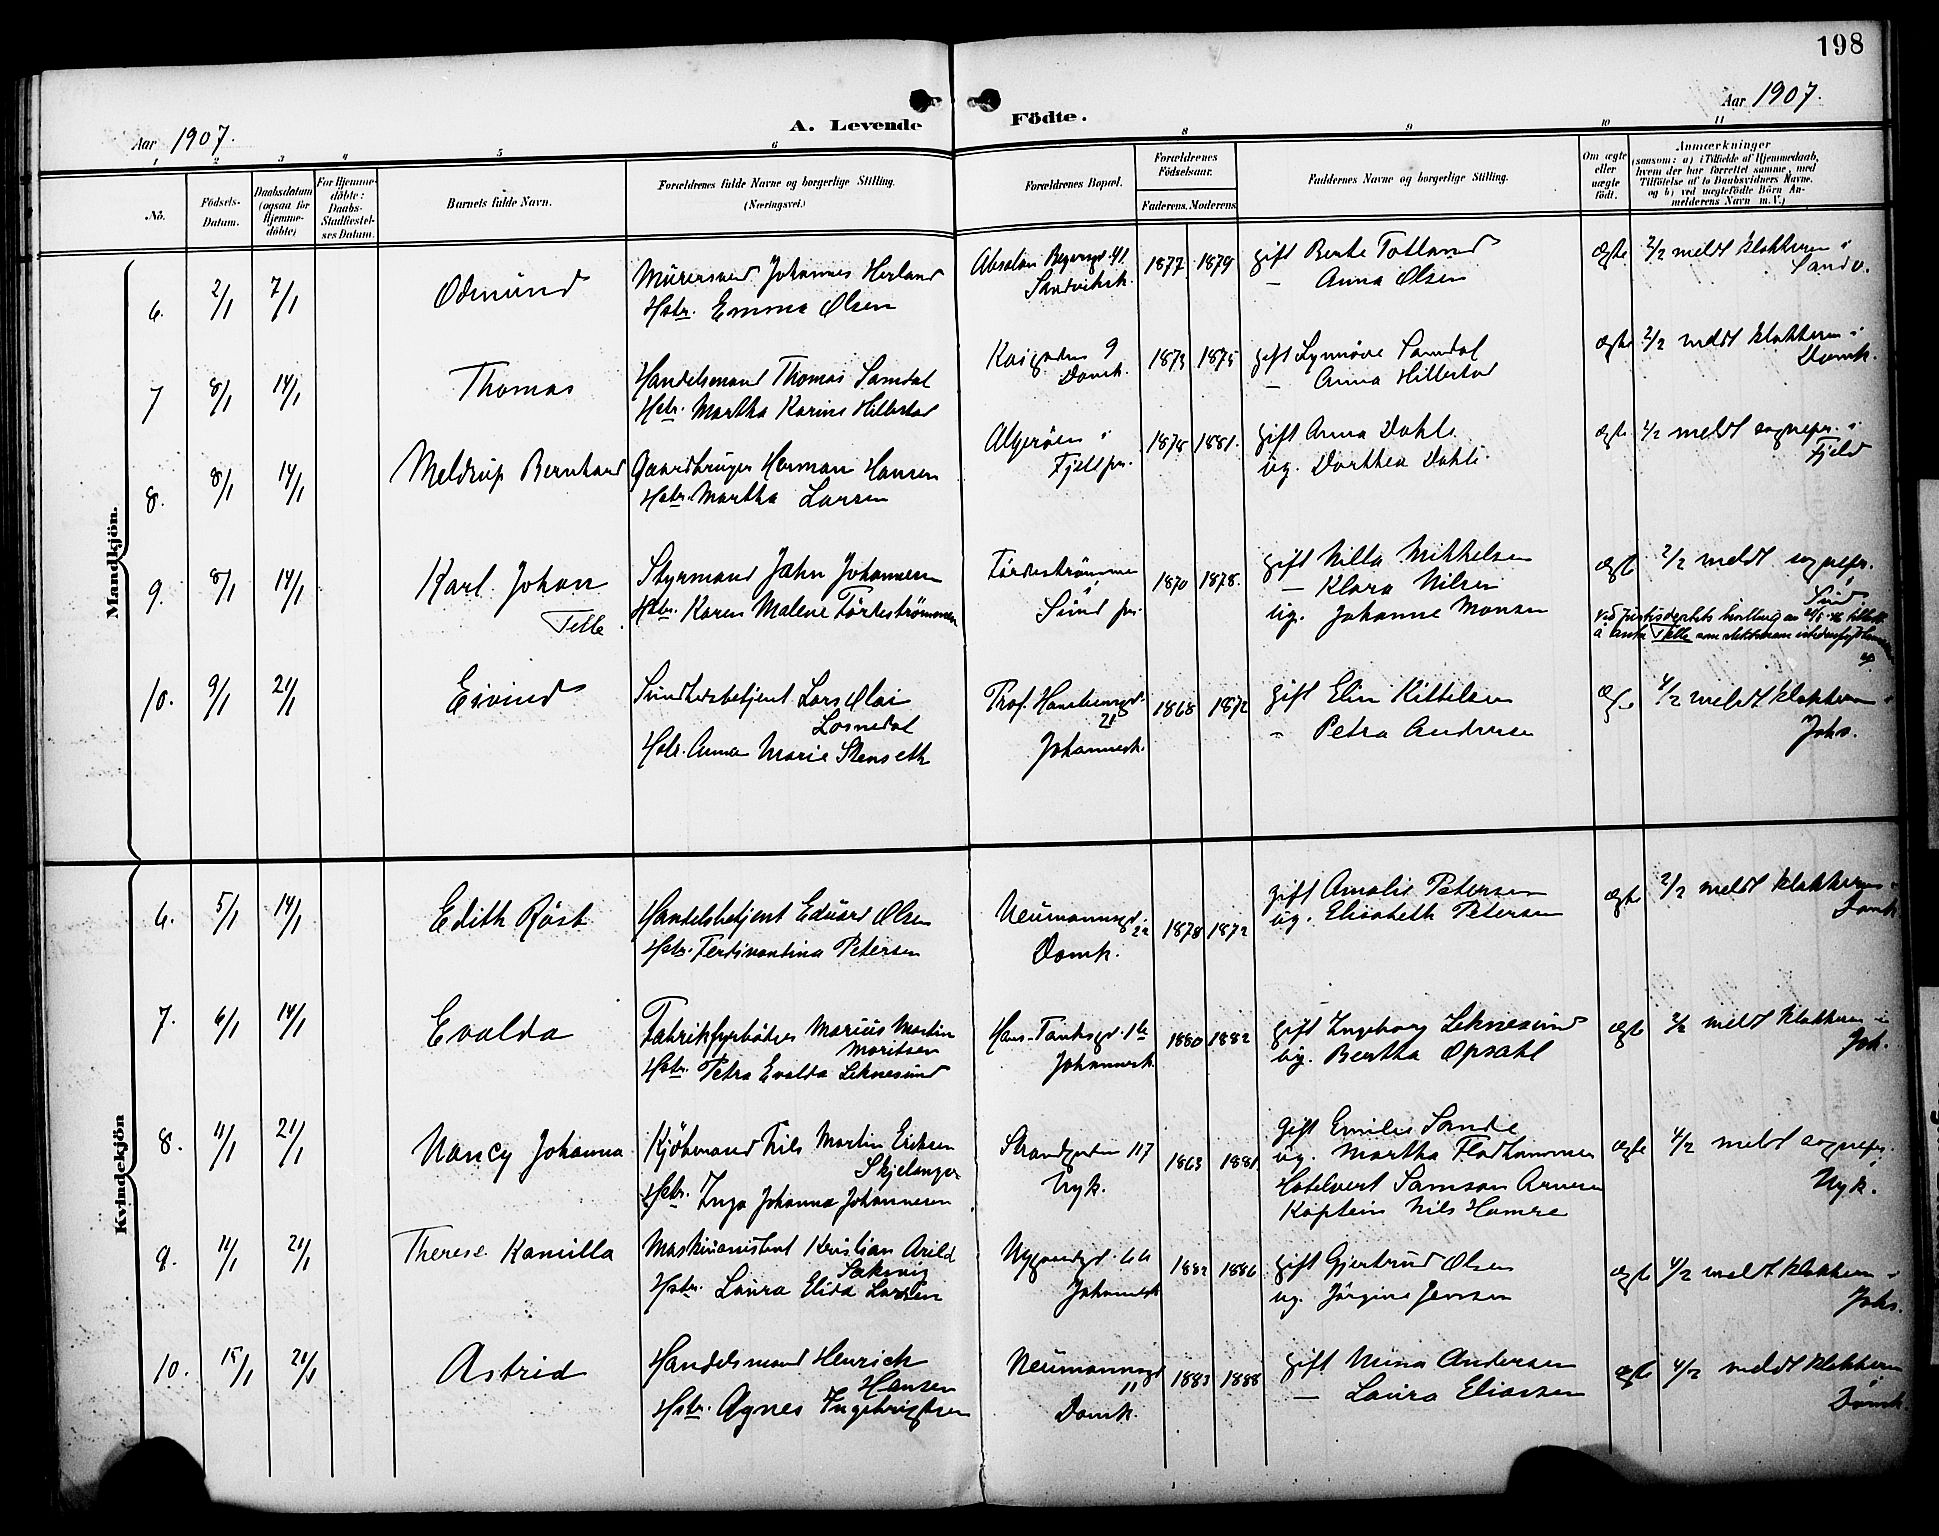 198
Aar 1907.
A. Levende Födte.
Aar 1907.
1 2 3 4 5 6 8 9 10 11
No.
Födsels-Datum.
Daabsdatum (ogsaa for Hjemme-döbte)
For Hjemme-döbte: Daabs-Stadfæstel-ses Datum.
Barnets fulde Navn.
Forældrenes fulde Navne og borgerlige Stilling.
(Næringsvei.)
Forældrenes Bopæl.
Forældrenes Födselsaar.
Faderens. Moderens.
Faddernes Navne og borgerlige Stilling.
Om ægte eller uægte födt.
Anmærkninger
(saasom: a) i Tilfælde af Hjemmedaab,
hvem der har forrettet samme, med
Tilföielse af to Daabsvidners Navne.
og b) ved uægtefödte Börn An-
melderens Navn m.V.)
Mandkjön.
6. 2/1 7/1 Odmund
Murersvend Johannes Herland
Hstr. Emma Olsen
Absalon Beyersgd. 41
Sandviksk.
1877 1879
gift Berte Totland
— Anna Olsen
ægte
2/2 meldt klokkeren i
Sandv.
7 8/1 14/1 Thomas
Handelsmand Thomas Samdal
Hstr. Martha Karine Hillestad
Kaigaden 9
Domk.
1873 1875
gift Synnöve Samdal
— Anna Hillestad
ægte
2/2 meldt klokkeren i
Domk.
8. 8/1 14/1 Meldrup Bernhard
Gaardbruger Herman Hansen
Hstr. Martha Larsen
Algeröen i
Fjeld pr.
1878 1881.
gift Anna Dahle
ug. Dorthea Dahle.
ægte
2/2 meldt sognepr. i
Fjeld
9. 8/1 14/1 Karl Johan
Telle.
Styrmand John Johannesen
Hstr. Karen Malene Fördeströmmen
Fördeströmmen
Sund pr.
1870 1878.
gift Nilla Mikkelsen
— Klara Nilsen
ug. Johanne Monsen
ægte
2/2 meldt sognepr. i
Sund
Ved Justisdeptets
å anta Telle som slektsnavn
10. 9/1 21/1 Eivind
Sundhedsbetjent Lars Olai
Losnedal
Hstr. Anna Marie Stenseth
Prof. Hansteensgd.
21
Johannesk.
1868 1872
gift Elin Kittelsen
— Petra Andersen
4/2 meldt klokkeren i
Johs.
Kvindekjön
6. 5/1 14/1 Edith Röst
Handelsbetjent Edvard Olsen
Hstr. Ferdinandina Petersen
Neumannsgd. 22
Domk.
1878 1872
gift Amalie Petersen
ug. Elisabeth Petersen
ægte
2/2 meldt klokkeren i
Domk
7. 6/1 14/1 Evalda
Fabrikfyrböder Marius Martin
Moritsen
Hstr. Petra Evalda Leknesund
Hans Tanksgd.
Johannesk.
1880 1882
gift Ingeborg Leknesund
ug. Bertha Opsahl
ægte
2/2 meldt klokkeren i
Joh.
8. 11/1 21/1 Nancy Johanna
Kjöbmand Nils Martin Eriksen
Skjelanger
Hstr. Inga Johanna Johannesen
Strandgaden 117
Nyk.
1863 1881
gift Emilie Sande
ug. Martha Fladhammer
Hotelvert Samson Arnesen
Kaptein Nils Hamre
ægte
4/2 meldt sognepr. i
Nyk.
9. 11/1 21/1 Therese Kamilla
Maskinassistent Kristian Arild
Sakvig
Hstr. Laura Elida Larsen
Nygaardsgd.
Johannesk
1882 1886
gift Gjertrud Olsen
ug. Jörgine Jensen
ægte
4/2 meldt klokkeren i
Johs.
10. 15/1 21/1 Astrid
Handelsmand Henrich
Hansen
Hstr. Agnes Ingebrigtsen
Neumannsgd
11
Domk.
1883 1888
gift Mina Andersen
— Laura Eliassen
ægte
4/2 meldt klokkeren
i Domk.